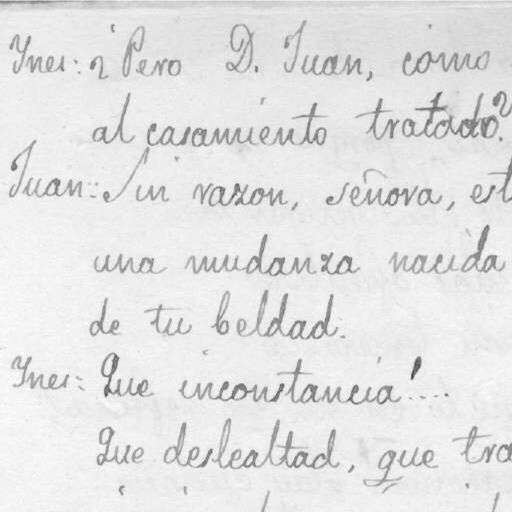 Ynes: ¿Pero D. Juan, como
al casamiento tratado?
Juan: Sin razon, señora, est
una mudanza nacida
de tu beldad.
Ynes: Que inconstancia!...
Que deslealtad, que tra